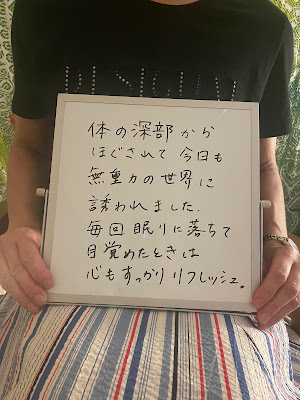 体の深部から
ほぐされて 今日も
無重力の世界に
誘われました。
毎回 眠りに落ちて
目覚めたときは
心もすっかりリフレッシュ。